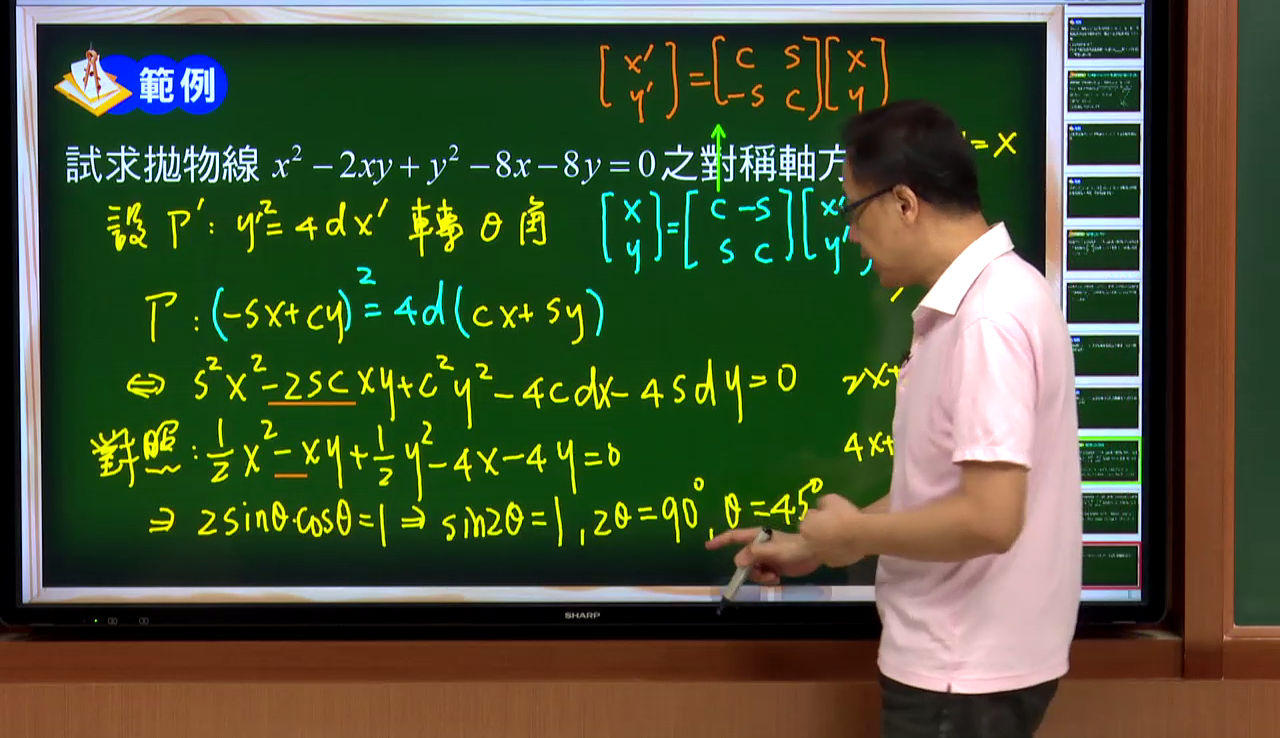 範例
[x' y'] = [c s -s c][x y]
試求拋物線 x² − 2xy + y² − 8x − 8y = 0 之對稱軸方
= x
設 Γ' : y'² = 4dx' 轉 θ 角
[x y] = [c -s s c][x' y']
Γ : (-sx+cy)² = 4d(cx+sy)
⇔ s²x² - 2sc xy + c²y² - 4cdx - 4sdy = 0
2x+
對照 : ½x² - xy + ½y² - 4x - 4y = 0
4x+
⇒ 2sinθ·cosθ = 1 ⇒ sin2θ = 1 , 2θ = 90° , θ = 45°
SHARP